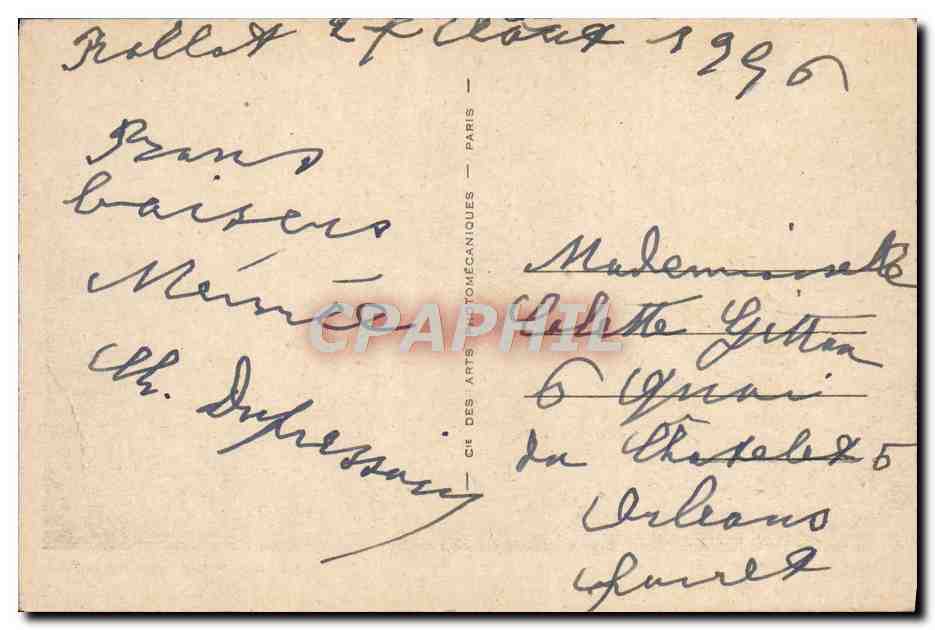 Rollot 27 Août 1946
Bons
baisers
Mémée
Ch. Dufressou
CIE DES ARTS PHOTOMÉCANIQUES — PARIS —
CPAPHIL
Mademoiselle
Colette Gitton
6 Quai
du Chatelet 5
Orleans
Loiret